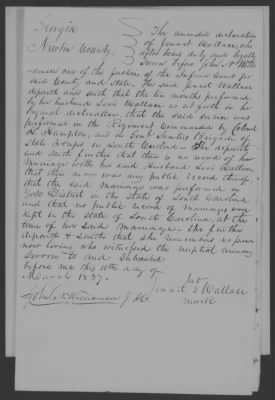 Georgia
Newton County
The amended declaration
of Jennet Wallace, who
after being duly and legally
Sworn before John N. Will-
iamson one of the justices of the Inferior Court for
said County and State. The said Jennet Wallace
deposeth and saith that the ten months performed
by her husband Levi Wallace as set forth in her
original declaration, that the said service was
performed in the Regiment Commanded by Colonel
H. Hampton, and in Genl Sumters Brigade of
State Troops in South Carolina. She deposeth
and saith further that there is no record of her
Marriage with her said Husband Levi Wallace,
that there never was any public record thereof,
that the said Marriage was performed in
York District in the State of South Carolina
and that no public record of Marriages was
kept in the state of South Carolina, at the
time of her said Marriage. She further
deposeth & saith that she remembers no person
now living who witnessed the nuptial ceremony
Sworn to and Subscribed
before me this 14th day of
March 1837.
her
Jennet x Wallace
mark
John N. Williamson J.I.C.